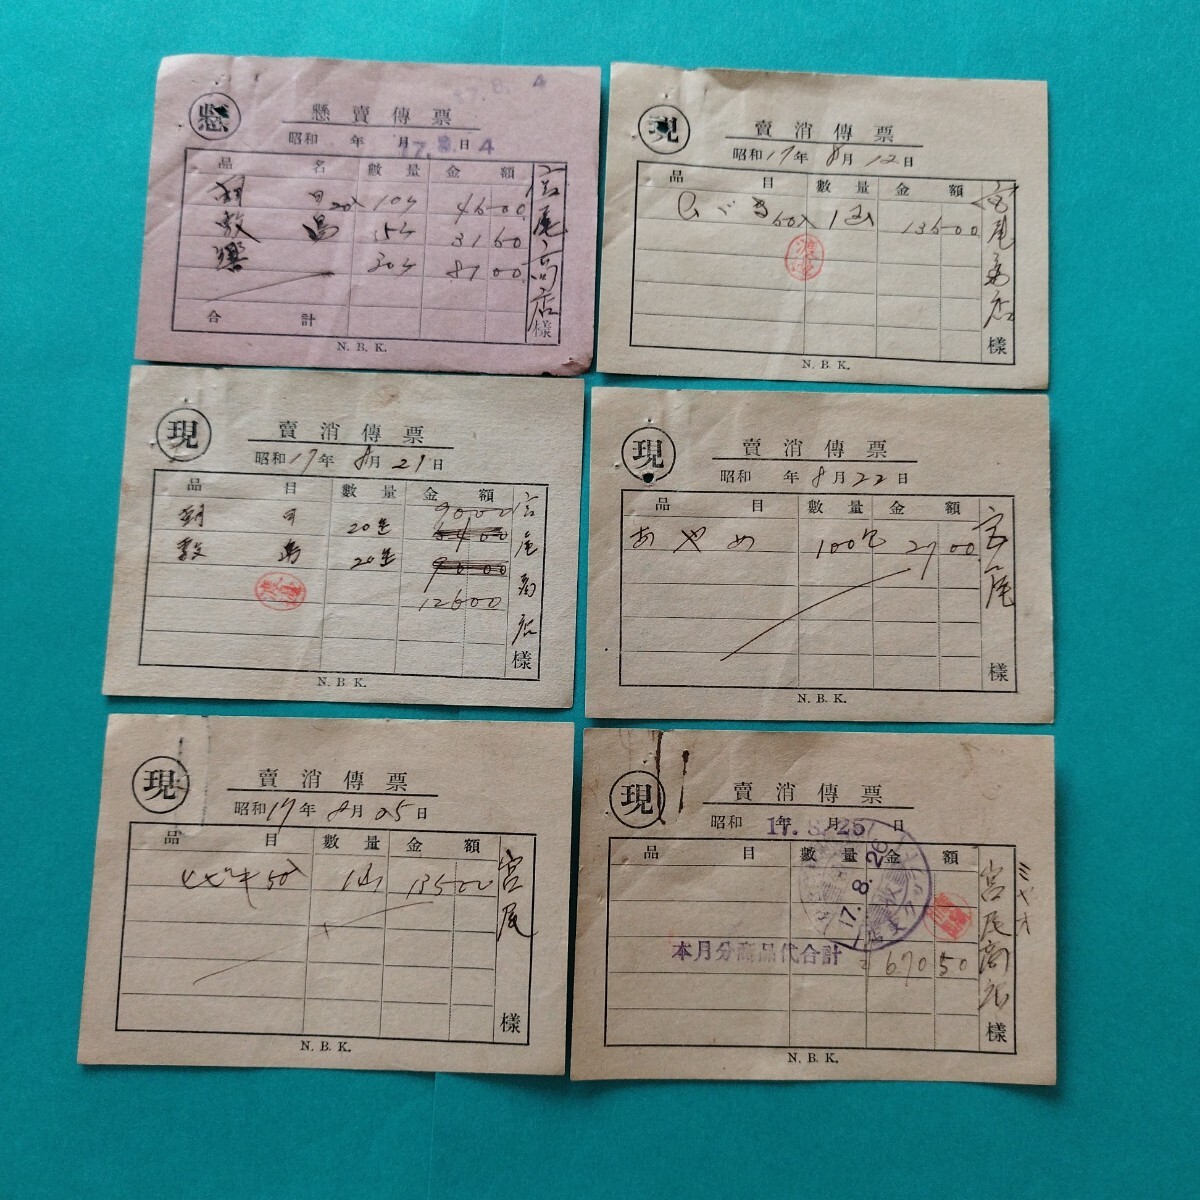 懸
懸賣傳票
昭和 年 月 日
17. 8. 4
品名 數量 金額
朝日 20入 10ケ 46 00
敷島 15ケ 31 60
30ケ 87 00
合計
宮尾商店 樣
N. B. K.
現
賣消傳票
昭和17年8月12日
品目 數量 金額
60入 1山 136 00
宮尾商店 樣
N. B. K.
現
賣消傳票
昭和17年8月21日
品目 數量 金額
朝日 20 90 00
敷島 20
126 00
宮尾商店 樣
N. B. K.
現
賣消傳票
昭和 年8月22日
品目 數量 金額
あやめ 100 27 00
宮尾 樣
N. B. K.
現
賣消傳票
昭和17年8月25日
品目 數量 金額
50入 1山 135 00
宮尾 樣
N. B. K.
現
賣消傳票
昭和 年 月 日
17. 8. 25
品目 數量 金額
17. 8. 26
本月分商品代合計 670 50
ミヤオ
宮尾商店 樣
N. B. K.